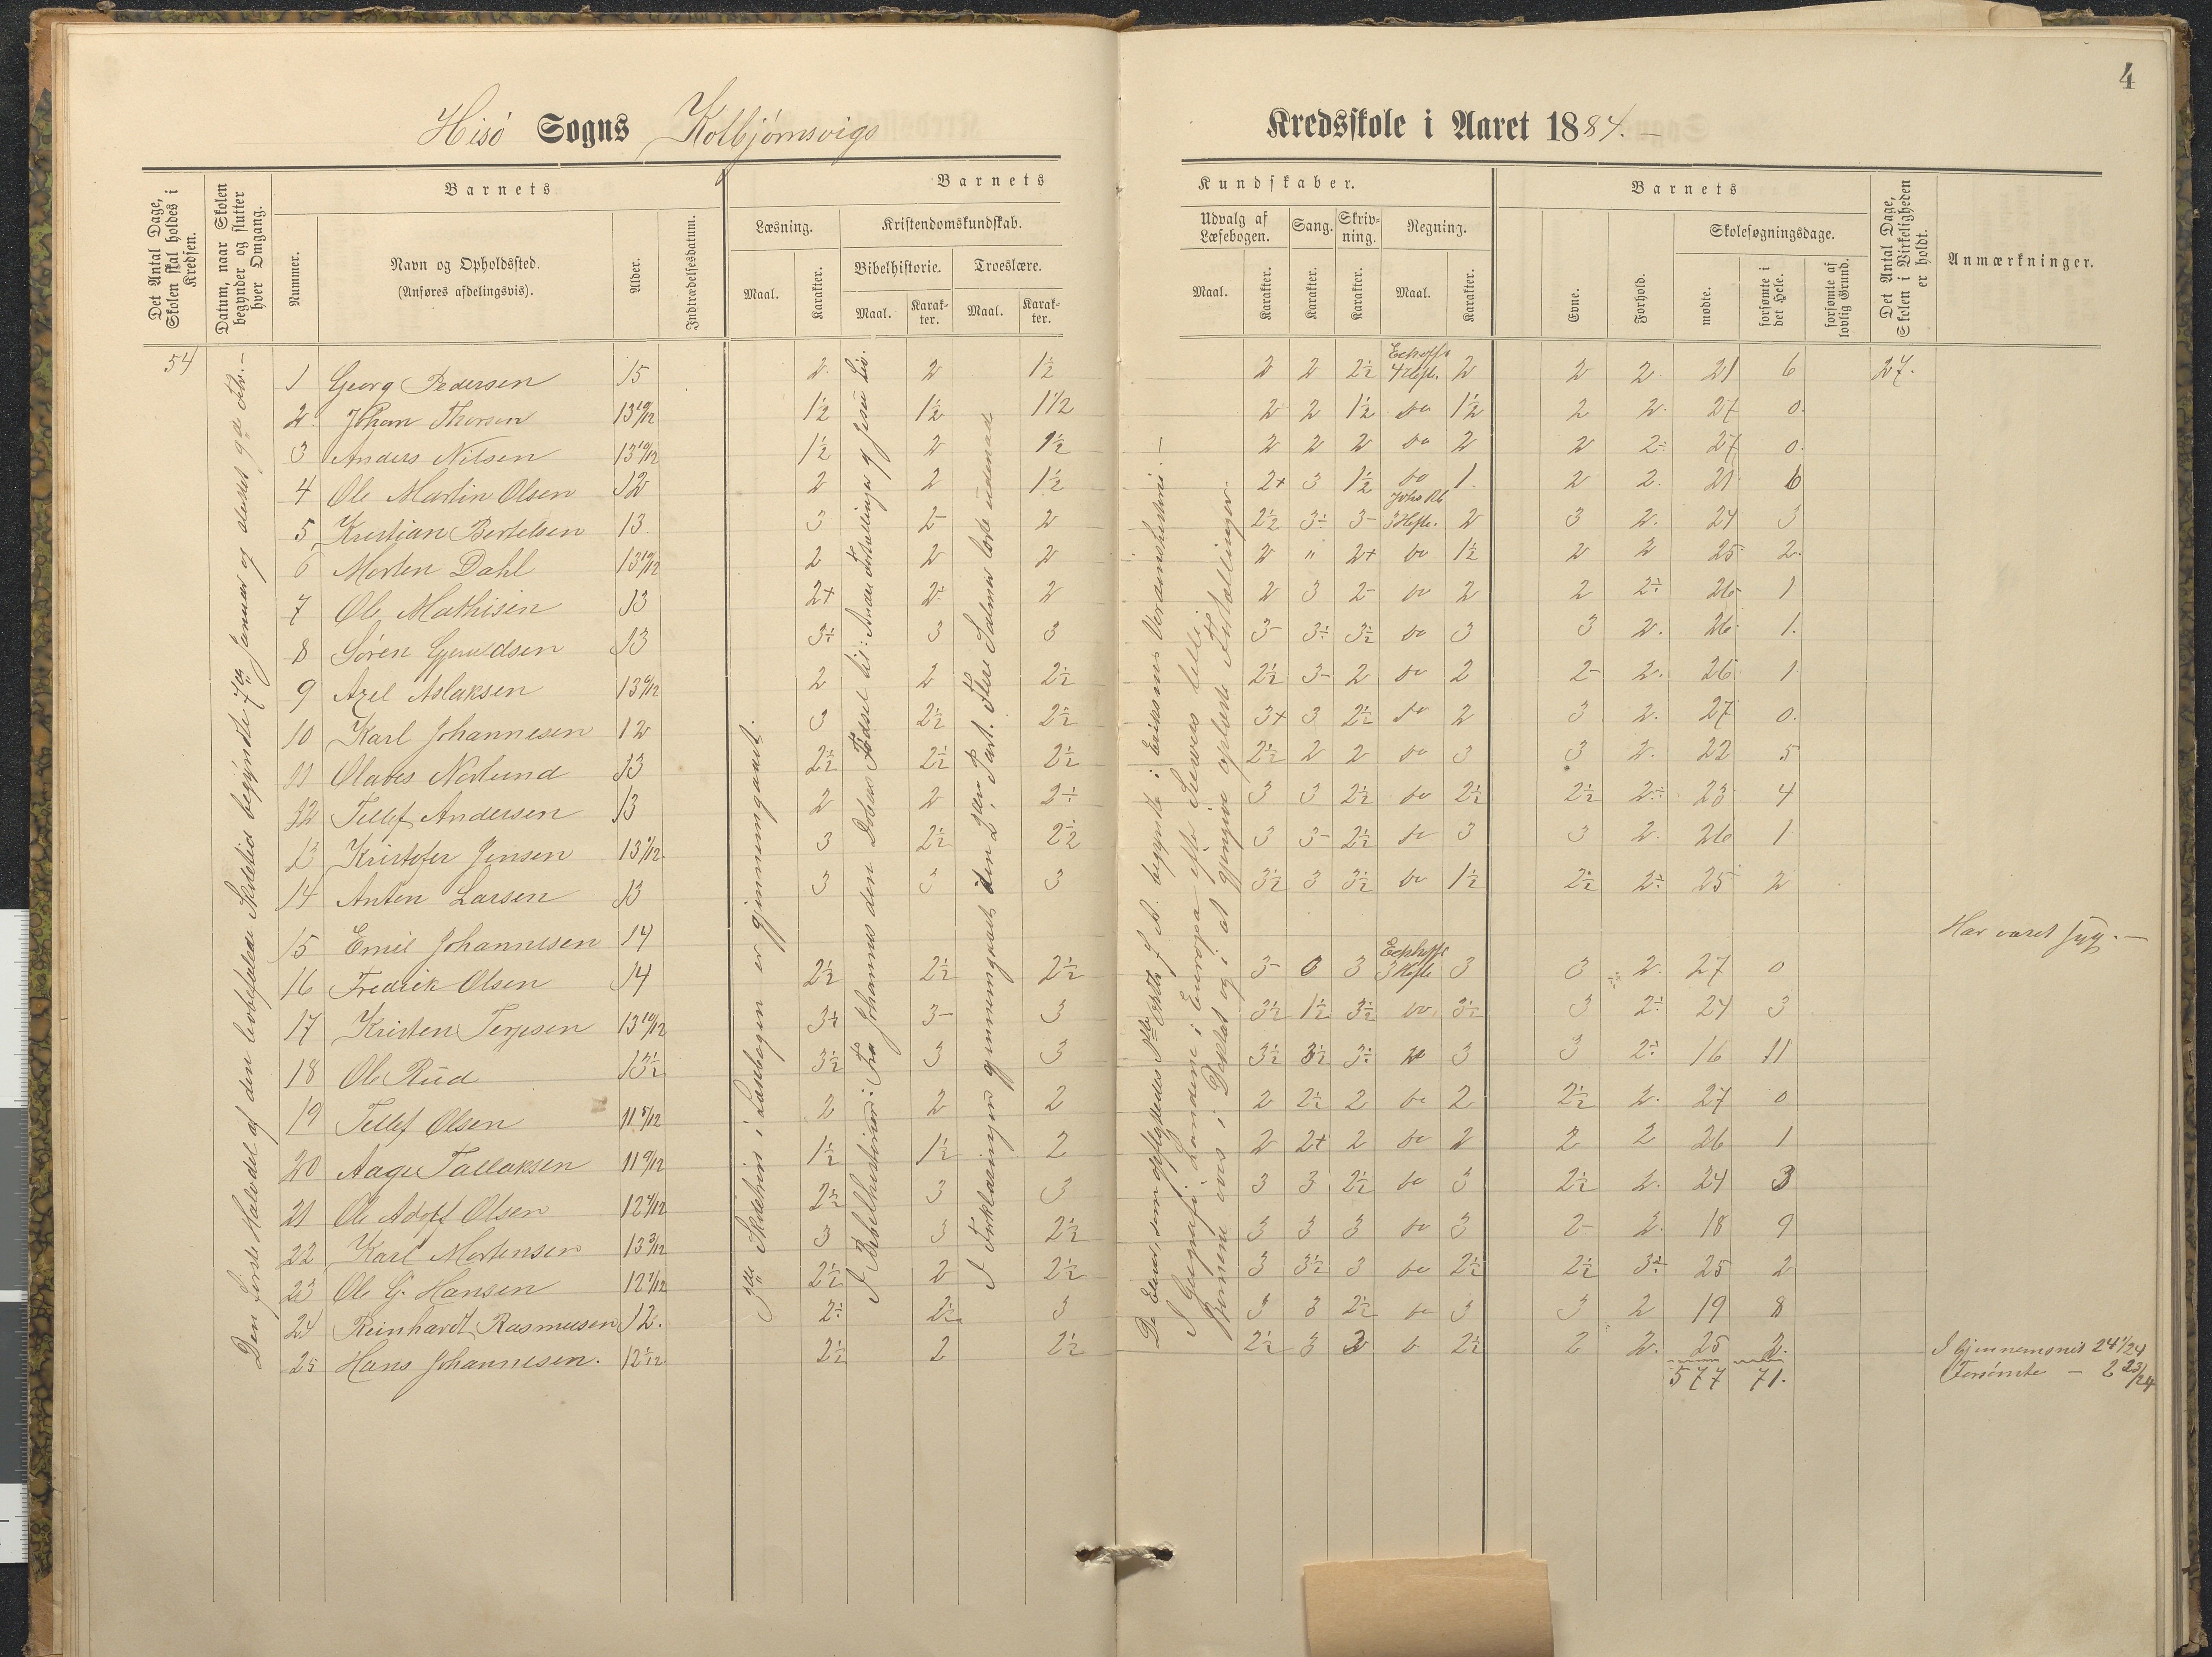 4
Hisö Sogns Kolbjørnsvigs Kredsskole i Aaret 1884.
Det Antal Dage, Skolen skal holdes i Kredsen.
Datum, naar Skolen begynder og slutter hver Omgang.
Barnets
Nummer.
Navn og Opholdssted.
(Anføres afdelingsvis).
Alder.
Indtrædelsesdatum.
Barnets
Læsning.
Kristendomskundskab.
Maal.
Karakter.
Bibelhistorie.
Troeslære.
Maal.
Karakter.
Maal.
Karakter.
Kundskaber.
Udvalg af Læsebogen.
Sang.
Skrivning.
Regning.
Maal.
Karakter.
Karakter.
Karakter.
Maal.
Karakter.
Barnets
Evne.
Forhold.
Skolesøgningsdage.
mødte.
forsømte i det Hele.
forsømte af lovlig Grund.
Det Antal Dage, Skolen i Virkeligheden er holdt.
Anmærkninger.
54
Den første Halvdel af den lovbefalede Skoletid begyndte 7de Januar og sluttet 9de Febr.
1 Georg Pedersen 15 2 2 1½ 2 2 2½ 4 Hefte. 2 2 2 21 6 27.
2 Johan Thorsen 13 10/12 1½ 1½ 1½ 2 2 1½ do 1½ 2 2. 27 0.
3 Anders Nilsen 13 10/12 1½ 2 1½ 2 2 2 do 2 2 2÷ 27 0.
4 Ole Martin Olsen 12 2 2 1½ 2+ 3 1½ do 1. 2 2. 21 6
5 Kristian Bertelsen 13. 3 2- 2 2½ 3÷ 3- 3 Hefte. 2 3 2. 24 3
6 Morten Dahl 13 10/12 2 2 2 2 " 2+ do 1½ 2 2 25 2.
7 Ole Mathisen 13 2+ 2÷ 2 2 3 2- do 2 2 2÷ 26 1
8 Sören Gjerudsen 13 3÷ 3 3 3- 3÷ 3½ do 3 3 2. 26 1.
9 Axel Aslaksen 13 2 2 2½ 2½ 3- 2 do 2 2- 2. 26 1
10 Karl Johannesen 12 3 2½ 2½ 3+ 3 2½ do 2 3 2. 27 0.
11 Olaves Norlund 13 2½ 2½ 2½ 2½ 2 2 do 3 3 2. 22 5
12 Tellef Andersen 13 2 2 2÷ 3 3 2½ do 2½ 2½ 2÷ 23 4
13 Kristofer Jensen 13 3 2½ 2½ 3 3- 2½ do 3 3 2. 26 1
14 Anten Larsen 13 3 3 3 3½ 3 3½ do 1½ 2½ 2÷ 25 2
15 Emil Johannesen 14 Har været syg.
16 Fredrik Olsen 14 2½ 2½ 2½ 3- 3 3 3 Hefte 3 3 2. 27 0
17 Kristen Terjesen 13 10/12 3½ 3- 3 3½ 1½ 3½ do 3½ 3 2÷ 24 3
18 Ole Rud 13½ 3½ 3 3 3½ 3½ 3÷ do 3 3 2÷ 16 11
19 Tellef Olsen 11 5/12 2 2 2 2 2½ 2 do 2 2½ 2. 27 0
20 Aage Tallaksen 11 9/12 1½ 1½ 2 2 2+ 2 do 2 2 2 26 1
21 Ole Adolf Olsen 12 2½ 3 3 3 3 2½ do 3 2½ 2. 24 3
22 Karl Mortensen 13 3/12 3 3 2½ 3 3 3 do 3 2- 2. 18 9
23 Ole G. Hansen 12 2½ 2 2½ 3 3½ 3 do 2½ 2½ 3÷ 25 2
24 Reinhardt Rasmusen 12. 2÷ 2½ 3 3 3 2½ do 3 3 2 19 8
25 Hans Johannesen. 12 1/12 2½ 2 2½ 2½ 3 do 2½ 2 2. 25 2.
577 71.
I Gjennemsnit 24 1/24
Forsømte - 2 23/24
3die Skoletrin i Læsebogen er gjennemgaaet.
I Bibelhistorien: Fra Johannes den Døbers Fødsel til: Andre Fortællinger af Jesu Liv.
I Forklaringen gjennemgaaet den 2den Part. Flere Salmer lærte udenad.
I Geografi: Landene i Europa efter Sievers lille